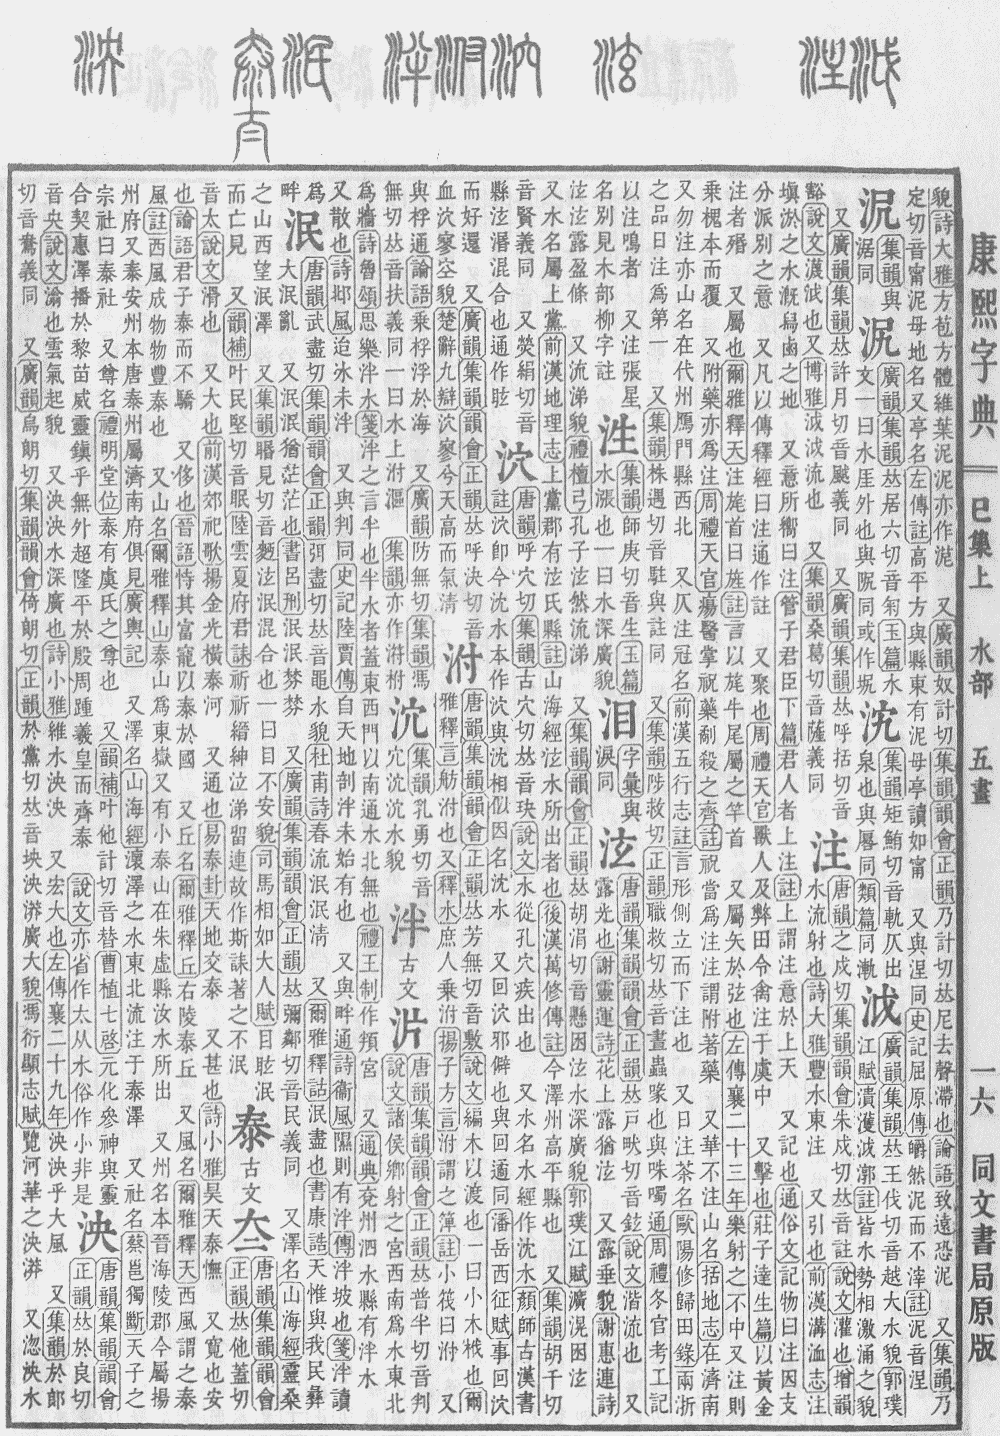 康熙字典 巳集上 水部 五畫 一六 同文書局原版
貌詩大雅方苞方體維葉泥泥亦作泥 又廣韻奴計切集韻韻會正韻乃計切𠀤尼去聲滯也論語致遠恐泥 又集韻乃
定切音甯泥母地名又亭名左傳註高平方與縣東有泥母亭讀如甯 又與涅同史記屈原傳皭然泥而不滓註泥音涅
集韻與涺同
廣韻集韻𠀤居六切音匊玉篇水文一曰水厓外也與阮同或作坭
集韻矩鮪切音軌仄出泉也與厬同類篇同漸
泧 廣韻集韻𠀤王伐切音越大水貌郭璞江賦潰濩泧漷註皆水勢相激涌之貌
又廣韻集韻𠀤許月切音颰義同 又廣韻集韻𠀤呼括切音豁說文瀎泧也又博雅泧泧流也 又集韻桑葛切音薩義同
注 唐韻之戍切集韻韻會朱戍切𠀤音註說文灌也增韻水流射也詩大雅豐水東注 又引也前漢溝洫志注
塡淤之水漑舄鹵之地 又意所嚮曰注管子君臣下篇君人者上注註上謂注意於上天 又記也通俗文記物曰注因支
分派別之意 又凡以傳釋經曰注通作註 又聚也周禮天官獸人及弊田令禽注于虞中 又擊也莊子達生篇以黃金
注者殙 又屬也爾雅釋天注旄首曰旌註言以旄牛尾屬之竿首 又屬矢於弦也左傳襄二十三年樂射之不中又注則
乗槐本而覆 又附藥亦爲注周禮天官瘍醫掌祝藥劀殺之齊註祝當爲注注謂附著藥 又華不注山名括地志在濟南
又勿注亦山名在代州鴈門縣西北 又仄注冠名前漢五行志註言形側立而下注也 又日注茶名歐陽修歸田錄兩浙
之品日注爲第一 又集韻株遇切音駐與註同 又集韻陟救切正韻職救切𠀤音晝蟲喙也與咮噣通周禮冬官考工記
以注鳴者 又注張星名別見木部柳字註
泩 集韻師庚切音生玉篇水漲也一曰水深廣貌
泪 字彙與淚同
泫 唐韻集韻韻會正韻𠀤戸畎切音鉉說文湝流也 又露光也謝靈運詩花上露猶泫 又露垂貌謝惠連詩
泫泫露盈條 又流涕貌禮檀弓孔子泫然流涕 又集韻韻會正韻𠀤胡涓切音懸困泫水深廣貌郭璞江賦㵢滉困泫
又水名屬上黨前漢地理志上黨郡有泫氏縣註山海經泫水所出者也後漢萬修傳註今澤州高平縣也 又集韻胡千切
音賢義同 又熒絹切音縣泫潛混合也通作眩
泬 唐韻呼穴切集韻古穴切𠀤音玦說文水從孔穴疾出也 又水名水經作沈水顏師古漢書
註泬卽今沈水本作泬與沈相似因名沈水 又回泬邪僻也與回遹同潘岳西征賦事回泬
而好還 又廣韻集韻韻會正韻𠀤呼決切音血泬寥空貌楚辭九辯泬寥兮天高而氣清
泭 唐韻集韻韻會正韻𠀤芳無切音敷說文編木以渡也一曰小木栰也爾雅釋言舫泭也又釋水庶人乗泭揚子方言泭謂之箄註小筏曰泭 又
與桴通論語乗桴浮於海 又廣韻防無切集韻馮無切𠀤音扶義同一曰水上泭漚 集韻亦作㳇柎
㲾 集韻孔勇切音 㲾㲾水貌
泮 古文片 唐韻集韻韻會正韻𠀤普半切音判說文諸侯鄉射之宮西南爲水東北
爲牆詩魯頌思樂泮水箋泮之言半也半水者蓋東西門以南通水北無也禮王制作頖宮 又通典兗州泗水縣有泮水
又散也詩邶風迨冰未泮 又與判同史記陸賈傳自天地剖泮未始有也 又與畔通詩衞風隰則有泮傳泮坡也箋泮讀爲畔
泯 唐韻武盡切集韻韻會正韻弭盡切𠀤音黽水貌杜甫詩春流泯泯淸 又爾雅釋詁泯盡也書康誥天惟與我民彝
大泯亂 又泯泯猶茫茫也書呂刑泯泯棼棼 又廣韻集韻韻會正韻𠀤彌鄰切音民義同 又澤名山海經靈桑
之山西望泯澤 又集韻䁕見切音麪泫泯混合也一曰目不安貌司馬相如大人賦目眩泯
而亡見 又韻補叶民堅切音眠陸雲夏府君誄祈祈縉紳泣涕留連故作斯誄著之不泯
泰 古文夳 唐韻集韻韻會正韻𠀤他蓋切
音太說文滑也 又大也前漢郊祀歌揚金光橫泰河 又通也易泰卦天地交泰 又甚也詩小雅昊天泰憮 又寬也安
也論語君子泰而不驕 又侈也晉語恃其富寵以泰於國 又丘名爾雅釋丘右陵泰丘 又風名爾雅釋天西風謂之泰
風註西風成物物豐泰也 又山名爾雅釋山泰山爲東嶽又有小泰山在朱虛縣汝水所出 又州名本晉海陵郡今屬揚
州府又泰安州本唐泰州屬濟南府俱見廣輿記 又澤名山海經㶟澤之水東北流注于泰澤 又社名蔡邕獨斷天子之
宗社曰泰社 又尊名禮明堂位泰有虞氏之尊也 又韻補叶他計切音替曹植七啓元化參神與靈
合契惠澤播於黎苗威靈鎮乎無外超隆平於殷周踵羲皇而齊泰 說文亦省作太从水俗作小非是
泱 唐韻集韻韻會正韻𠀤於良切
音央說文滃也雲氣起貌 又泱泱水深廣也詩小雅維水泱泱 又宏大也左傳襄二十九年泱泱乎大風 又集韻於郎
切音鴦義同 又廣韻烏朗切集韻韻會倚朗切正韻於黨切𠀤音坱泱漭廣大貌馮衍顯志賦覽河華之泱漭 又滃泱水